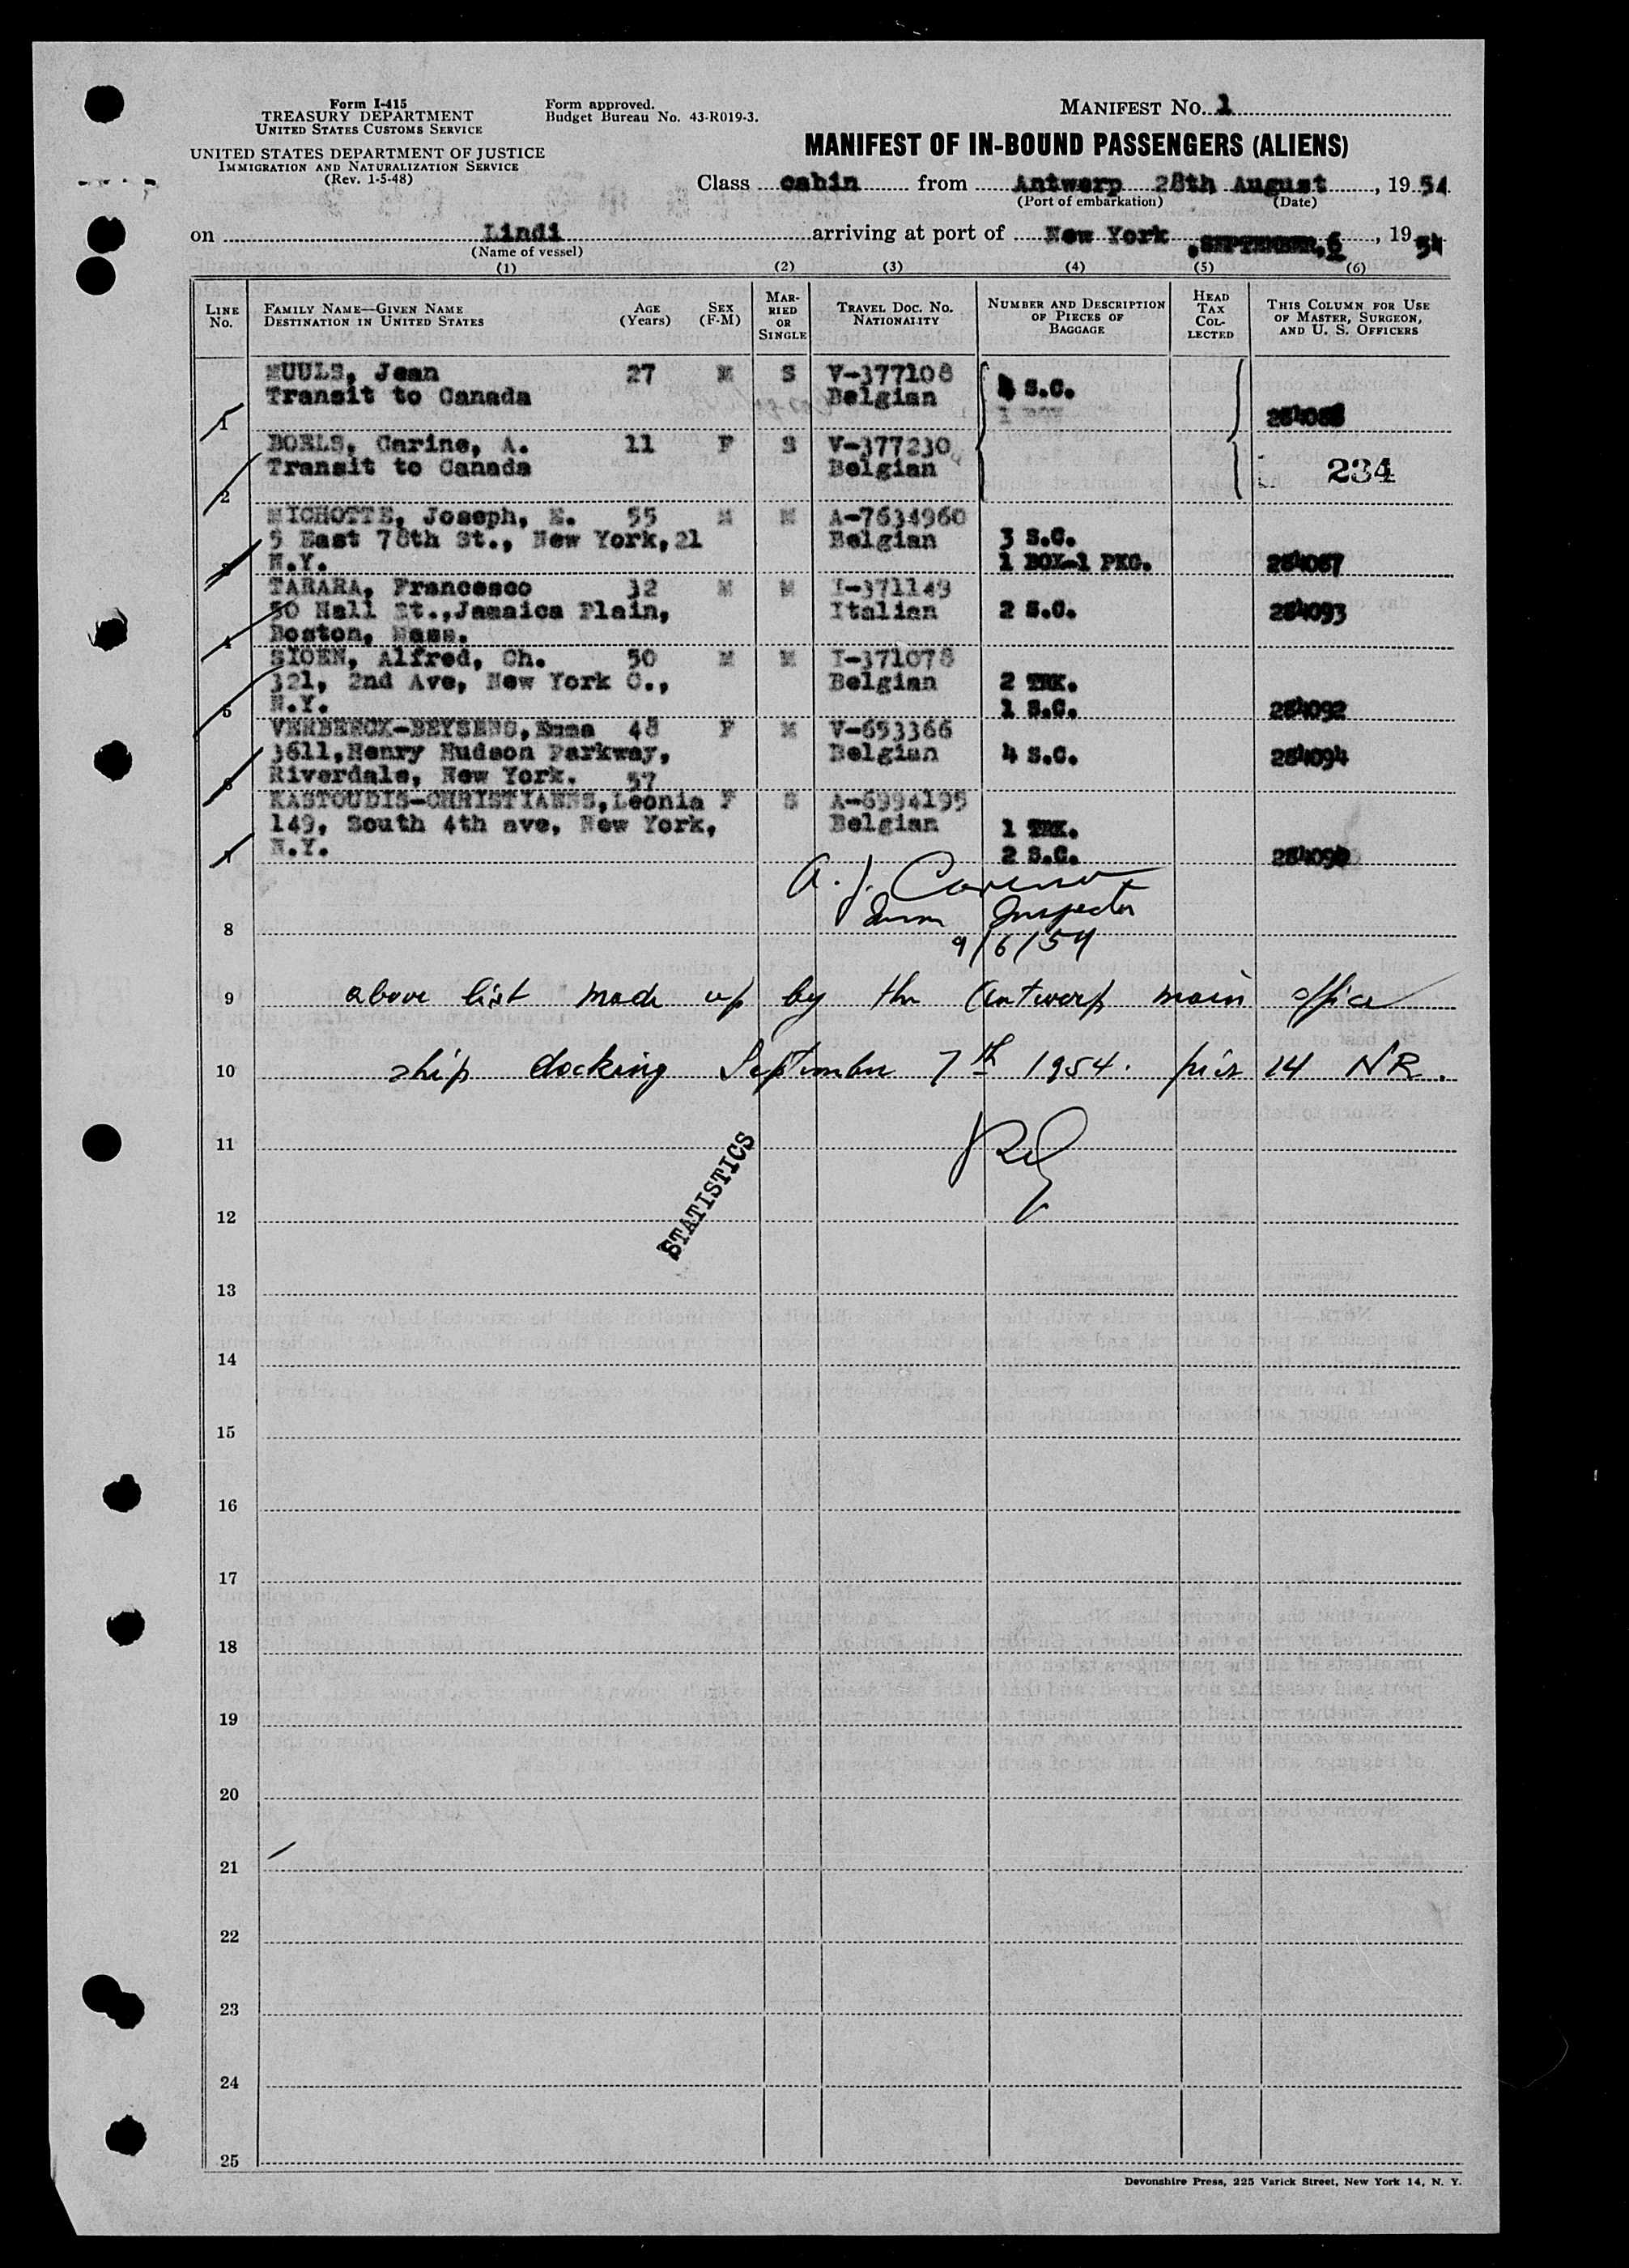 Form I-415
TREASURY DEPARTMENT
UNITED STATES CUSTOMS SERVICE
UNITED STATES DEPARTMENT OF JUSTICE
IMMIGRATION AND NATURALIZATION SERVICE
(Rev. 1-5-48)
Form approved.
Budget Bureau No. 43-R019-3.
MANIFEST NO. 1
MANIFEST OF IN-BOUND PASSENGERS (ALIENS)
Class cabin from Antwerp 28th August, 1954
(Port of embarkation) (Date)
on Lindi arriving at port of New York, SEPTEMBER, 6, 1954
(Name of vessel)
(1) (2) (3) (4) (5) (6)
LINE No. FAMILY NAME—GIVEN NAME DESTINATION IN UNITED STATES AGE (Years) SEX (F-M) MARRIED OR SINGLE TRAVEL DOC. NO. NATIONALITY NUMBER AND DESCRIPTION OF PIECES OF BAGGAGE HEAD TAX COLLECTED THIS COLUMN FOR USE OF MASTER, SURGEON, AND U. S. OFFICERS
MUULS, Jean 27 M S V-377108
Transit to Canada Belgian 4 S.C.
1
BOELS, Carine, A. 11 F S V-377230
Transit to Canada Belgian 234
2
MICHOTTE, Joseph, E. 55 M M A-7634960
5 East 78th St., New York, 21 Belgian 3 S.C.
3 N.Y. 1 BOX-1 PKG. 284087
TARARA, Francesco 32 M M I-371149
50 Hall St., Jamaica Plain, Italian 2 S.C. 284093
4 Boston, Mass.
SIOEN, Alfred, Ch. 50 M M I-371078
321, 2nd Ave, New York C., Belgian 2 TRK.
5 N.Y. 1 S.C. 284092
VERBEECK-BEYSENS, Emma 48 F M V-653366
3611, Henry Hudson Parkway, Belgian 4 S.C. 284094
6 Riverdale, New York. 57
KASTOUDIS-CHRISTIAENS, Leonia F S A-6994195
149, South 4th ave, New York, Belgian 1 TRK.
7 N.Y. 2 S.C.
A. J.
Imm Inspector
8 9/6/54
9 above list made up by the Antwerp main office
10 ship docking September 7th 1954. pier 14 NR.
11
STATISTICS
12
13
14
15
16
17
18
19
20
21
22
23
24
25
Devonshire Press, 225 Varick Street, New York 14, N. Y.